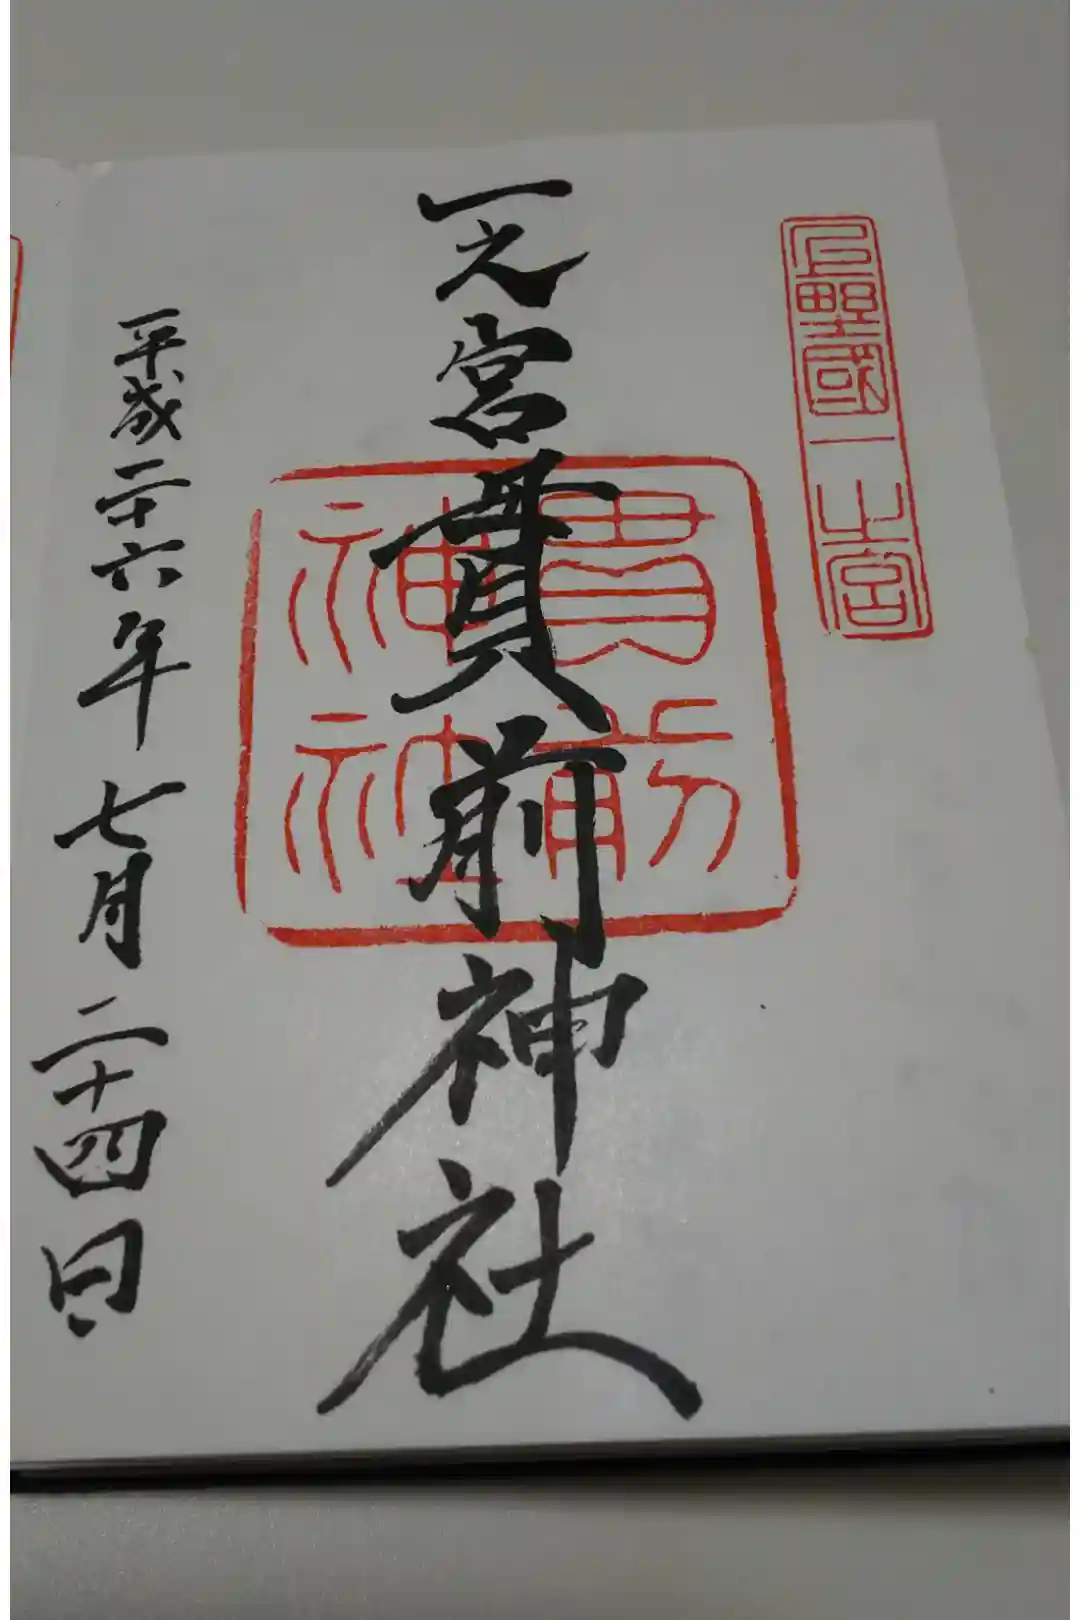 上野國一之宮
一之宮貫前神社
貫前
神社
平成二十六年七月二十四日